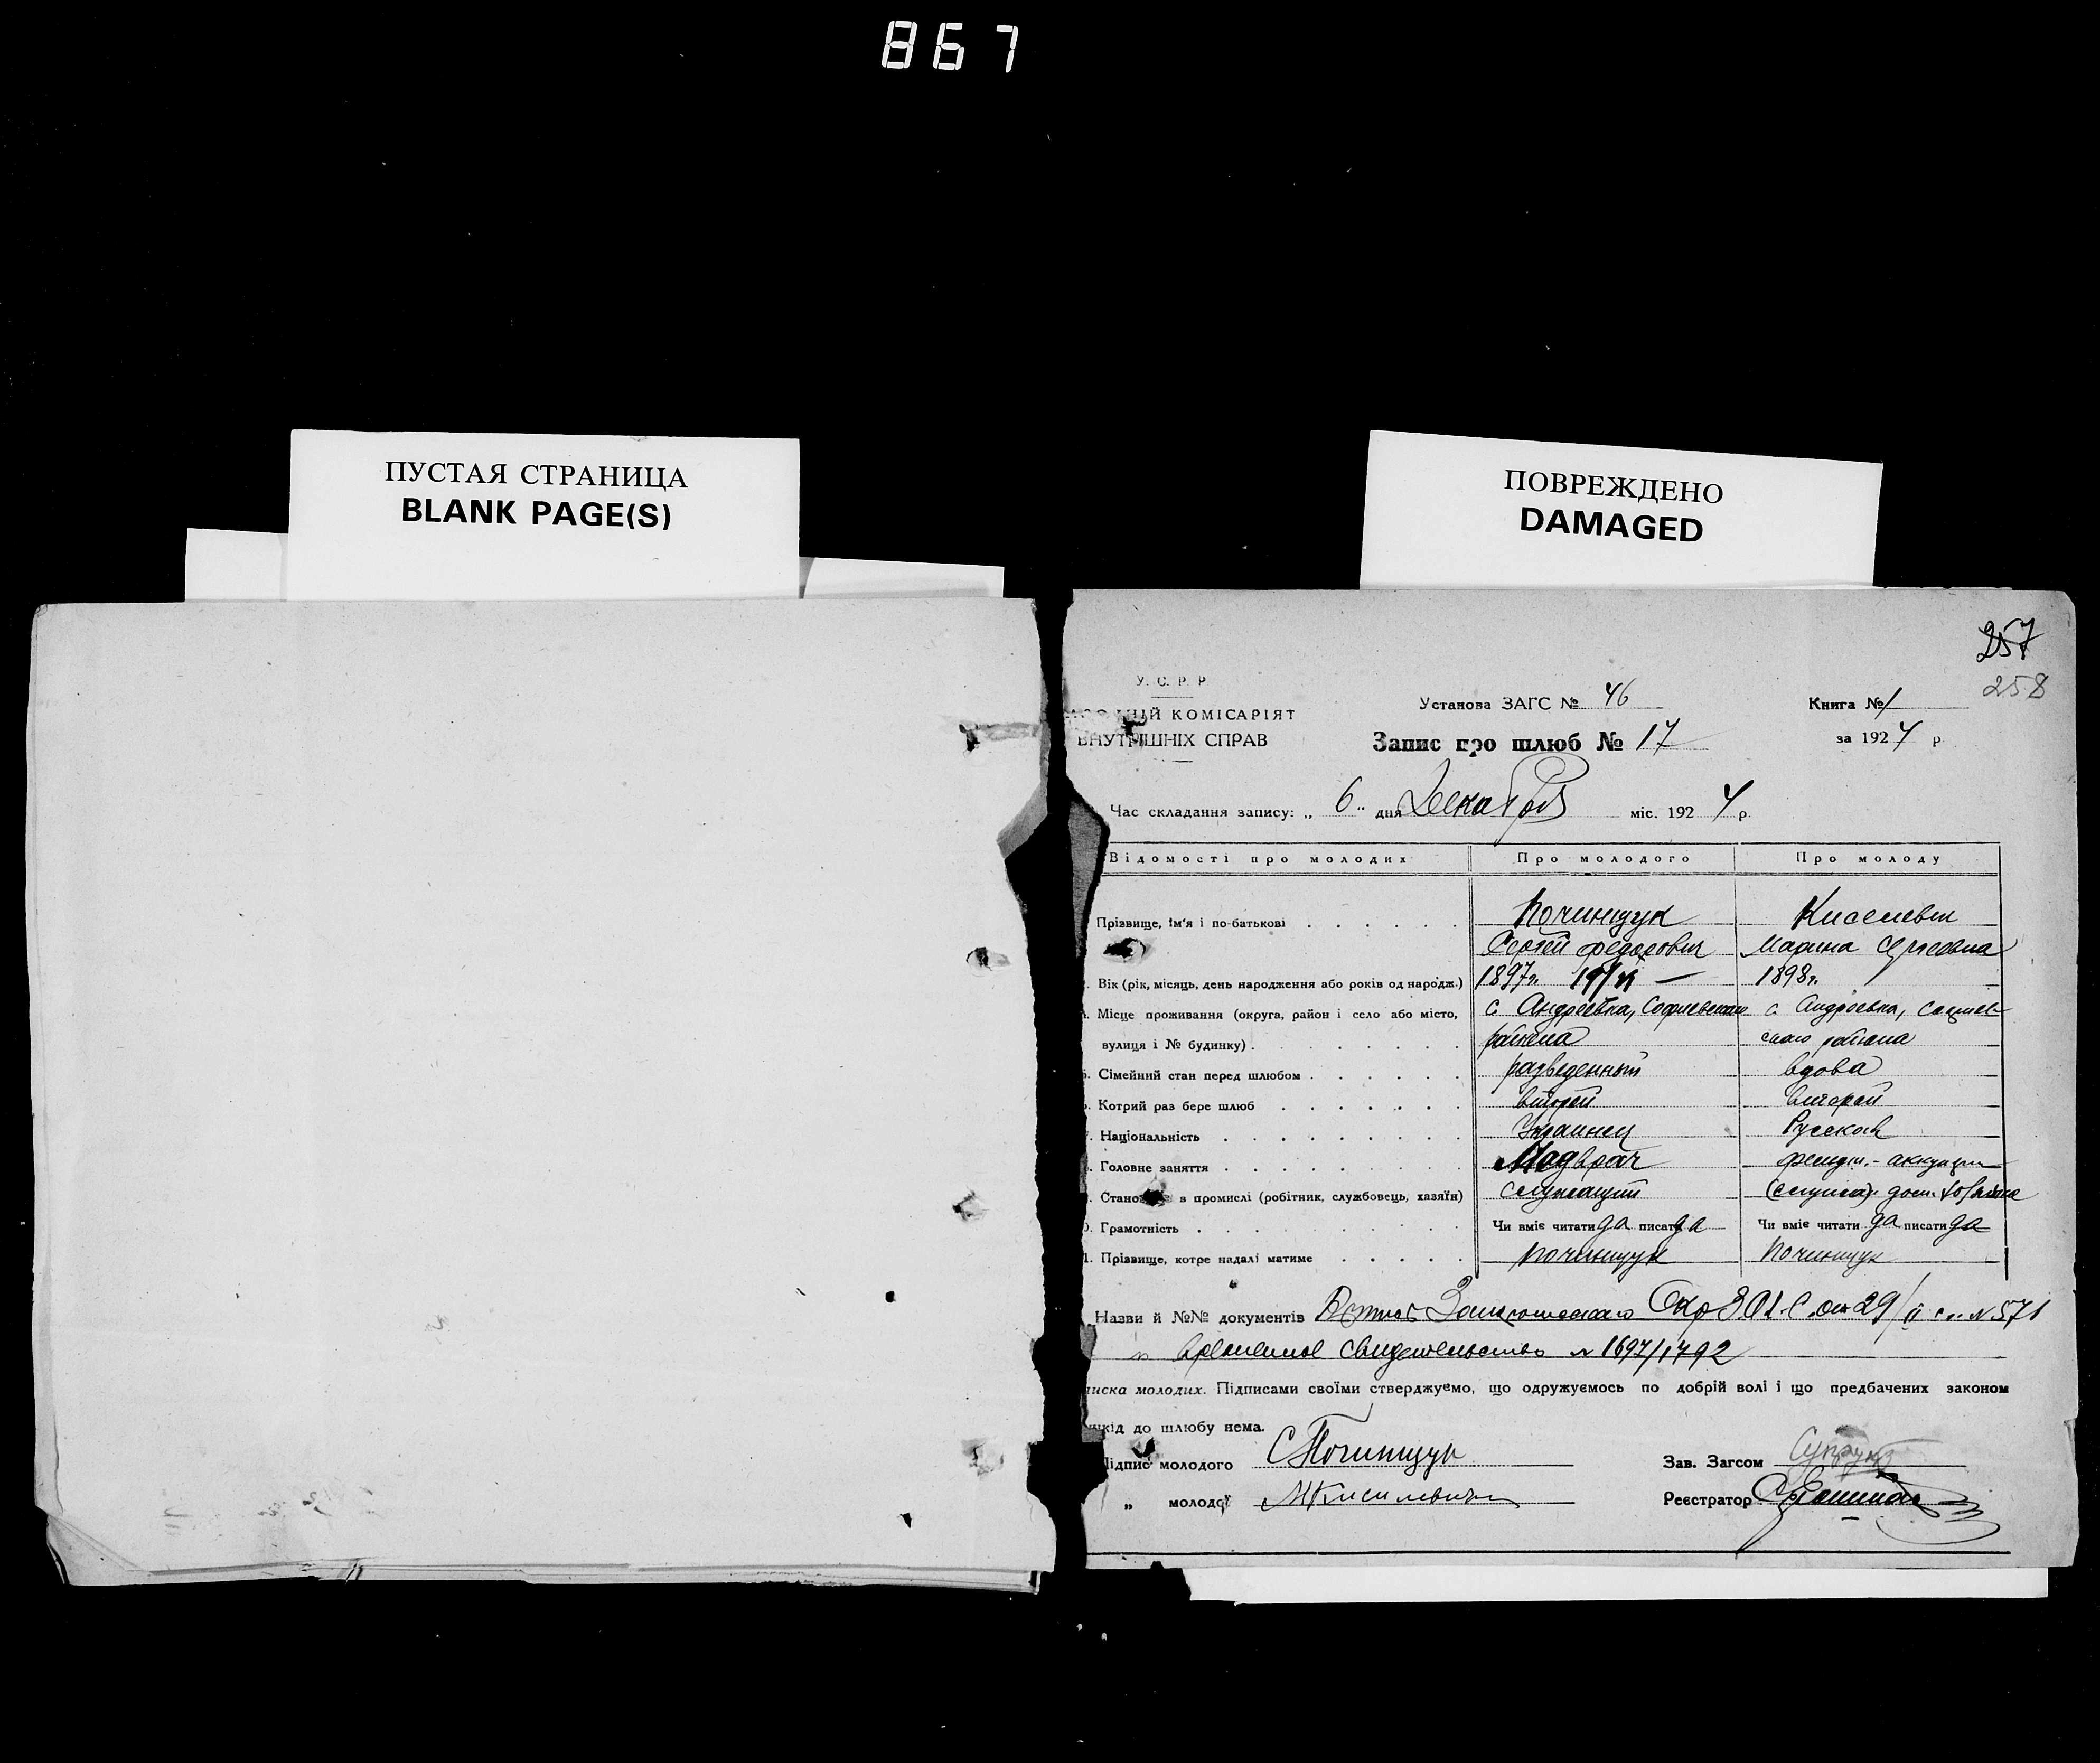 867
ПУСТАЯ СТРАНИЦА
BLANK PAGE(S)
ПОВРЕЖДЕНО
DAMAGED
257
258
У. С. Р. Р
КОМІСАРІЯТ
ВНУТРІШНІХ СПРАВ
Установа ЗАГС № 46
Книга № 1
Запис про шлюб № 17
за 1924 р
Час складання запису: „ 6 „ дня Декабря міс. 1924 р.
Відомості про молодих Про молодого Про молоду
Прізвище, ім'я і по-батькові Починщук Киселевич
Сергей Федорович Марина Сергеевна
Вік (рік, місяць, день народження або років од народж.) 1897г. 1898г.
Місце проживання (округа, район і село або місто, с. Андреевка, Софиевского с. Андреевка, Софиев-
вулиця і № будинку) района ского района
Сімейний стан перед шлюбом разведенный вдова
Котрий раз бере шлюб второй второй
Національність Украинец Русская
Головне заняття врач
в промислі (робітник, службовець, хазяїн) служащий
Грамотність Чи вміє читати да писати да Чи вміє читати да писати да
Прізвище, котре надалі матиме Починщук Починщук
Назви й №№ документів от 29/II с.г. № 571
временное свидетельство № 1697/1792
молодих. Підписами своїми стверджуємо, що одружуємось по добрій волі і що предбачених законом
до шлюбу нема.
Підпис молодого СПочинщук Зав. Загсом
„ молодої МКисилевич Реєстратор